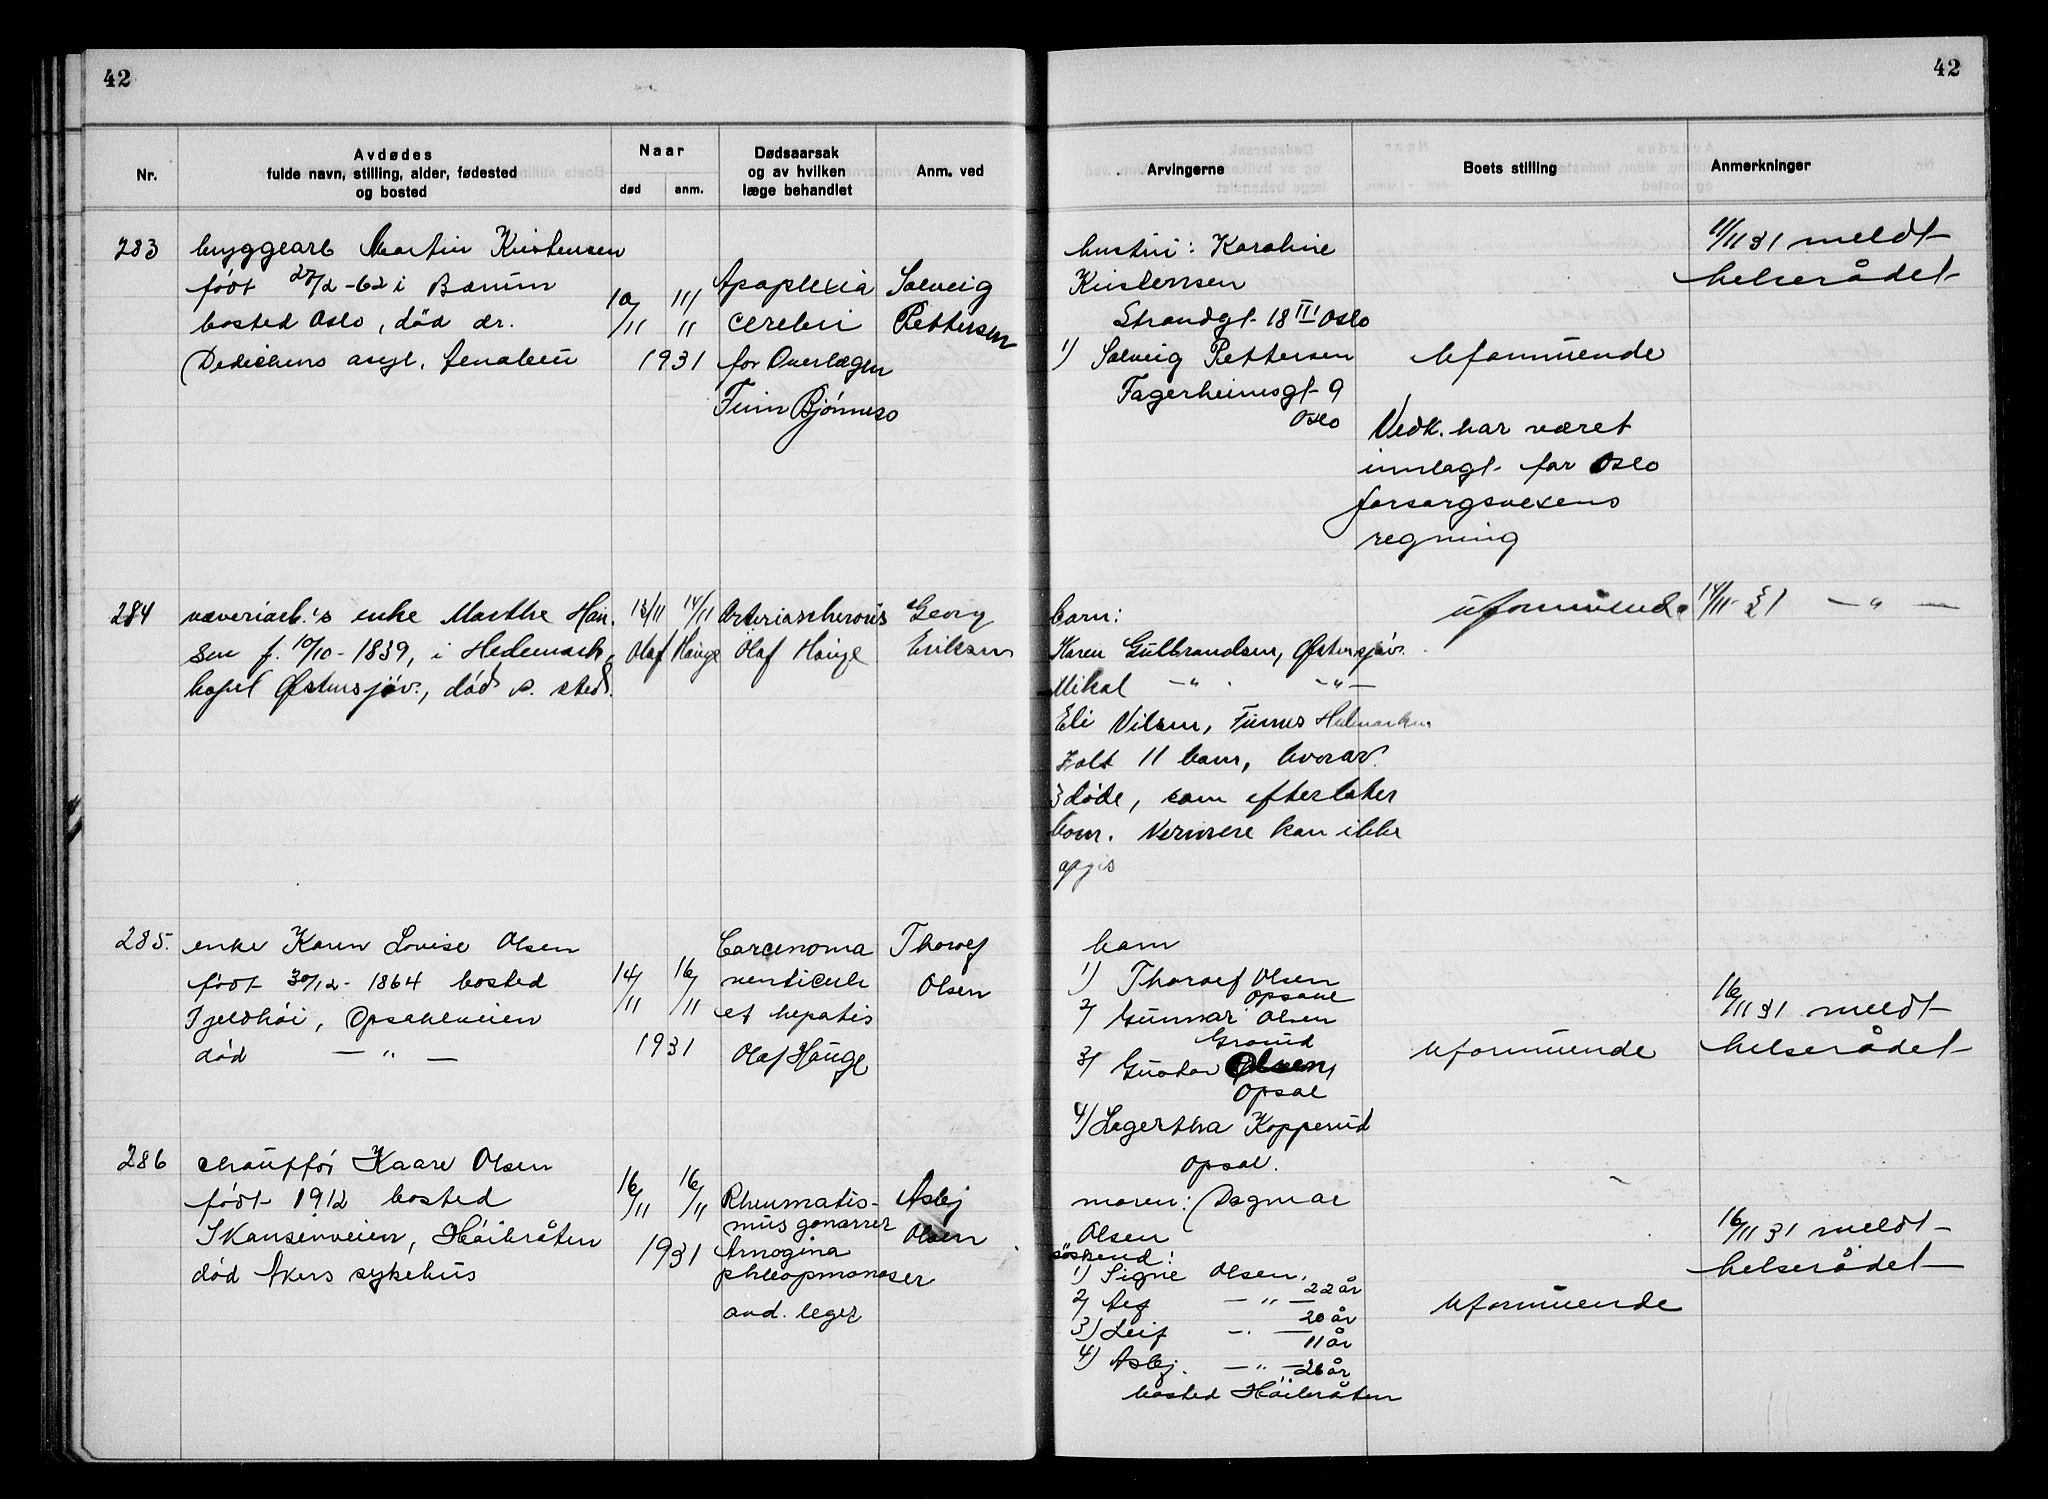 42
42
Nr.
Avdødes
fulde navn, stilling, alder, fødested
og bosted
Naar
død
anm.
Dødsaarsak
og av hvilken
læge behandlet
Anm. ved
Arvingerne
Boets stilling
Anmerkninger
283
bryggearb Martin Kristensen
født 27/2 -62 i Bærum
bosted Oslo, død dr.
Dedichens asyl,
10/11
11/11
1931
Apoplexia
cerebri
for Overlægen
Finn Bjørnsen
Solveig
Pettersen
hustru: Karoline
Kristensen
Strandgt 18 III Oslo
1) Solveig Pettersen
Fagerheimsgt 9
Oslo
Uformuende
Vedk. har været
innlagt for Oslo
forsorgsvesens
regning
11/11 31 meldt
helserådet
284
væveriarb.'s enke Marthe Han.
sen f. 10/10 - 1839, i Hedemark,
Østensjøv., død s. sted.
13/11
14/11
Olaf Hauge
Arteriosclerosis
Olaf Hauge
Georg
Eriksen
barn:
Karen Gulbrandsen, Østensjøv.
Mikal — " — — " —
Eli Nilsen, Furnes Hedmarken
Falt 11 barn, hvorav
3 døde, som efterlater
barn. Nærmere kan ikke
opgis
uformuende
14/11 - 31 — " —
285.
enke Karen Lovise Olsen
født 30/12 - 1864 bosted
Fjeldhøi, Opsahlveien
død — " —
14/11
16/11
1931
Carcenoma
ventriculi
et hepatis
Olaf Hauge
Thorolf
Olsen
barn
1) Thorolf Olsen
Opsal
2) Gunnar Olsen
Grorud
3) Gustav Olsen,
Opsal
4) Lagertha Kopperud
Opsal.
Uformuende
16/11 31 meldt
helserådet
286
chauffør Kaare Olsen
født 1912 bosted
Skansenveien, Høibråten
død Akers sykehus
16/11
16/11
1931
Rheumatis-
mus
and. leger
Asbj
Olsen
moren: Dagmar
Olsen
søskend:
1) Signe Olsen,
22 år
2) Alf — " —
20 år
3) Leif — " —
11 år
4) Asbj. — " — 26 år
bosted Høibråten
Uformuende
16/11 31 meldt
helserådet